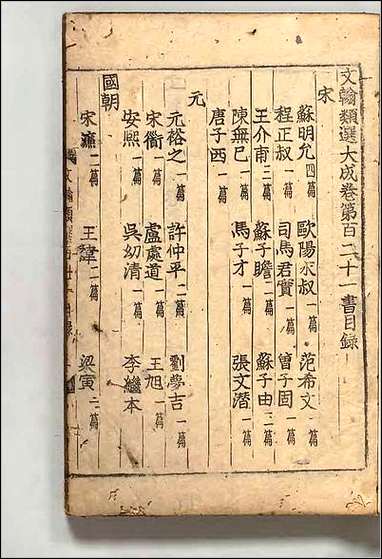 文翰類選大成卷第百二十一 書目錄
宋
蘇明允四篇 歐陽永叔一篇 范希文一篇
程正叔一篇 司馬君實一篇 曾子固一篇
王介甫三篇 蘇子瞻二篇 蘇子由二篇
陳無已一篇 馬子才一篇 張文潛一篇
唐子西一篇
元
元裕之一篇 許仲平二篇 劉夢吉一篇
宋衜一篇 盧處道一篇 王旭一篇
安熙一篇 吳幼清一篇 李繼本
國朝
宋濂二篇 王褘一篇 梁寅二篇